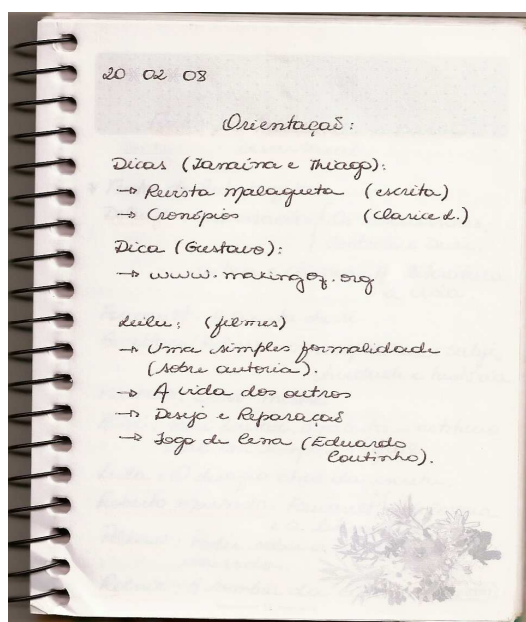 20 02 08
Orientação:
Dicas (Janaína e Thiago):
→ Revista Malagueta (escrita)
→ Cronópios (Clarice L.)
Dica (Gustavo):
→ www.makingof.org
Leila: (filmes)
→ Uma simples formalidade
(sobre autoria).
→ A vida dos outros
→ Desejo e Reparação
→ Jogo de Cena (Eduardo
Coutinho).